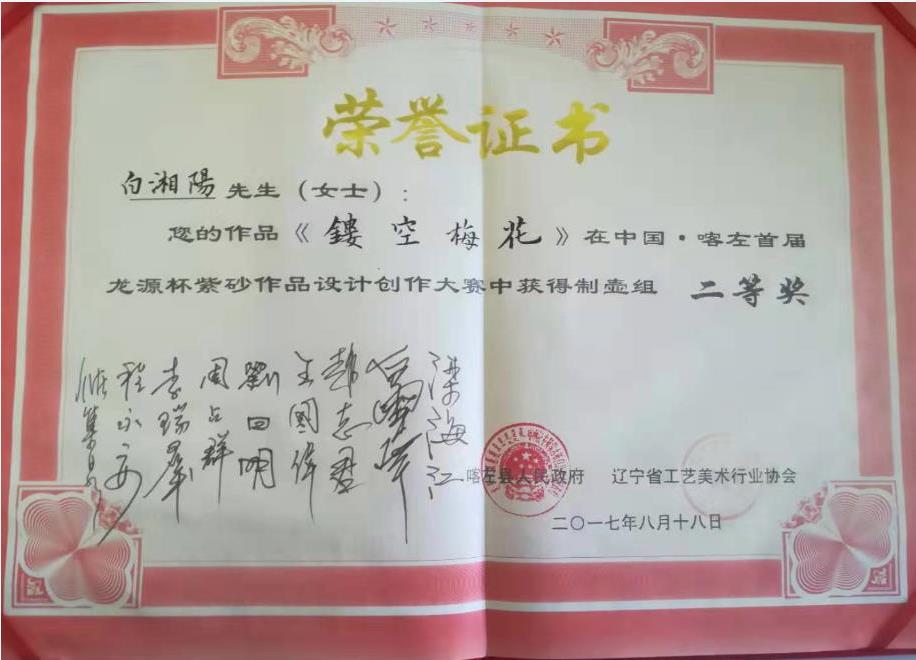 荣誉证书
白湘陽先生（女士）：
您的作品《鏤空梅花》在中国·喀左首届
龙源杯紫砂作品设计创作大赛中获得制壶组 二等奖
程永安
李瑞羣
周占群
劉日明
王國偉
海江
喀左县人民政府 辽宁省工艺美术行业协会
二〇一七年八月十八日